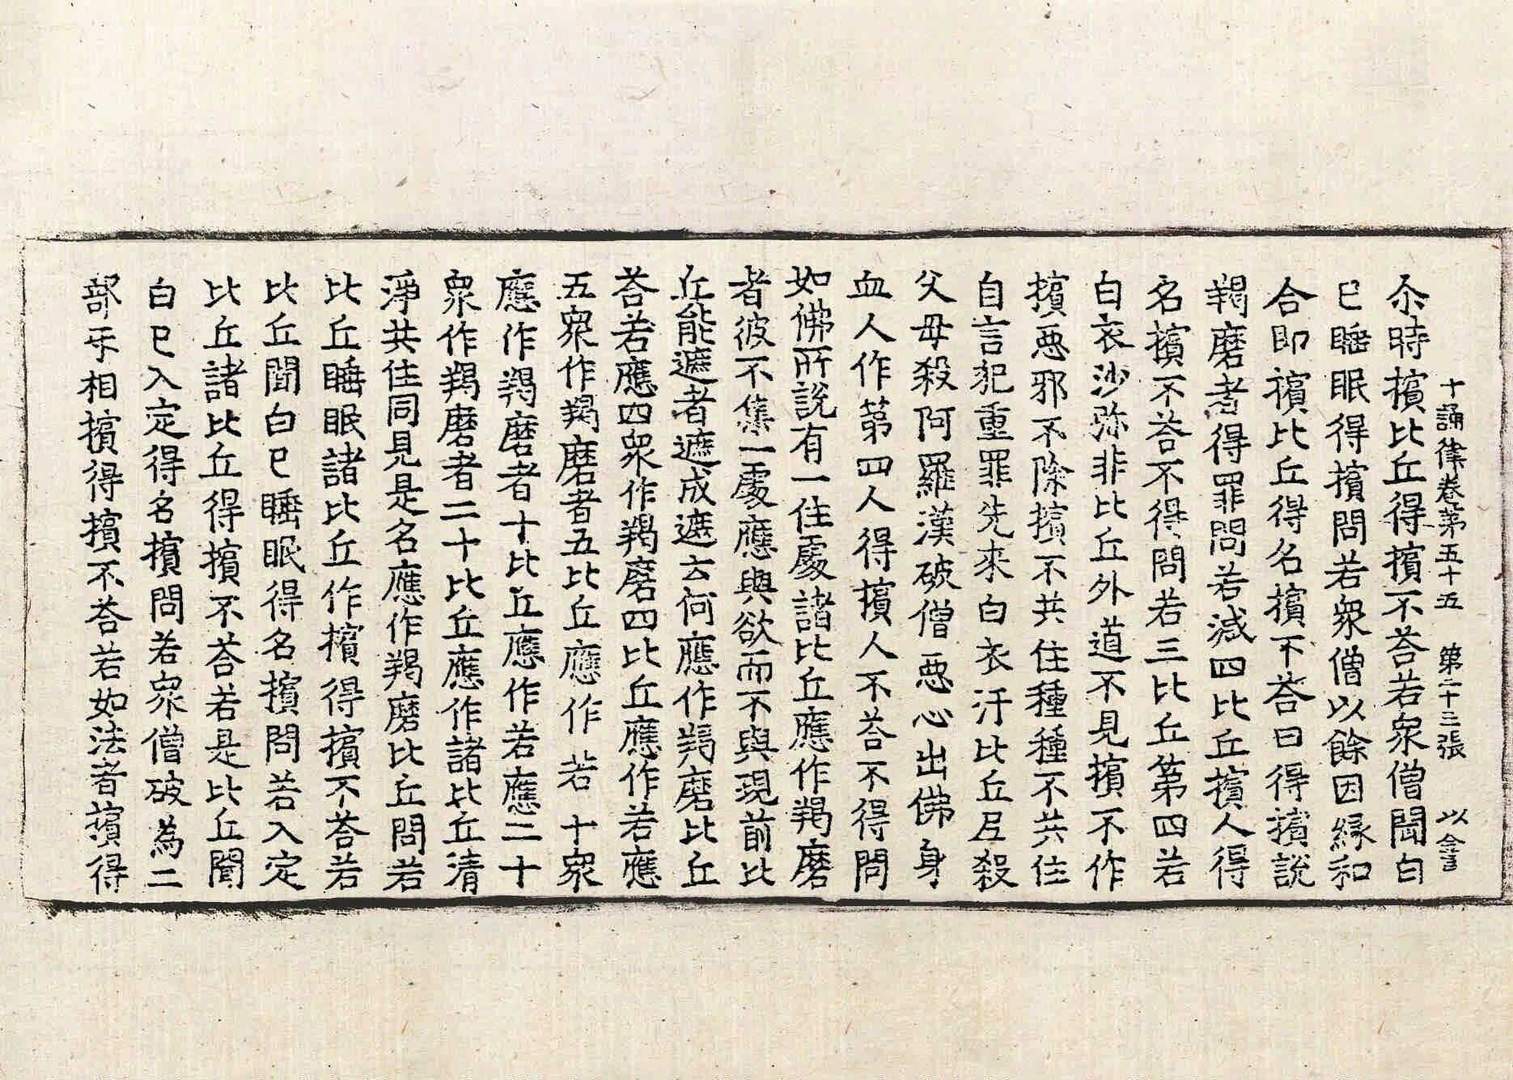 十誦律卷第五十五　第二十三張　以
尒時擯比丘得擯不荅若衆僧聞白
已睡眠得擯問若衆僧以餘因縁和
合即擯比丘得名擯不荅曰得擯說
羯磨者得罪問若減四比丘擯人得
名擯不荅不得問若三比丘第四若
白衣沙弥非比丘外道不見擯不作
擯惡邪不除擯不共住種種不共住
自言犯重罪先來白衣汙比丘尼殺
父母殺阿羅漢破僧惡心出佛身
血人作第四人得擯人不荅不得問
如佛所說有一住處諸比丘應作羯磨
者彼不集一處應與欲而不與現前比
丘能遮者遮成遮云何應作羯磨比丘
荅若應四衆作羯磨四比丘應作若應
五衆作羯磨者五比丘應作若十衆
應作羯磨者十比丘應作若應二十
衆作羯磨者二十比丘應作諸比丘清
淨共住同見是名應作羯磨比丘問若
比丘睡眠諸比丘作擯得擯不荅若
比丘聞白已睡眠得名擯問若入定
比丘諸比丘得擯不荅若是比丘聞
白已入定得名擯問若衆僧破為二
部乎相擯得擯不荅若如法者擯得